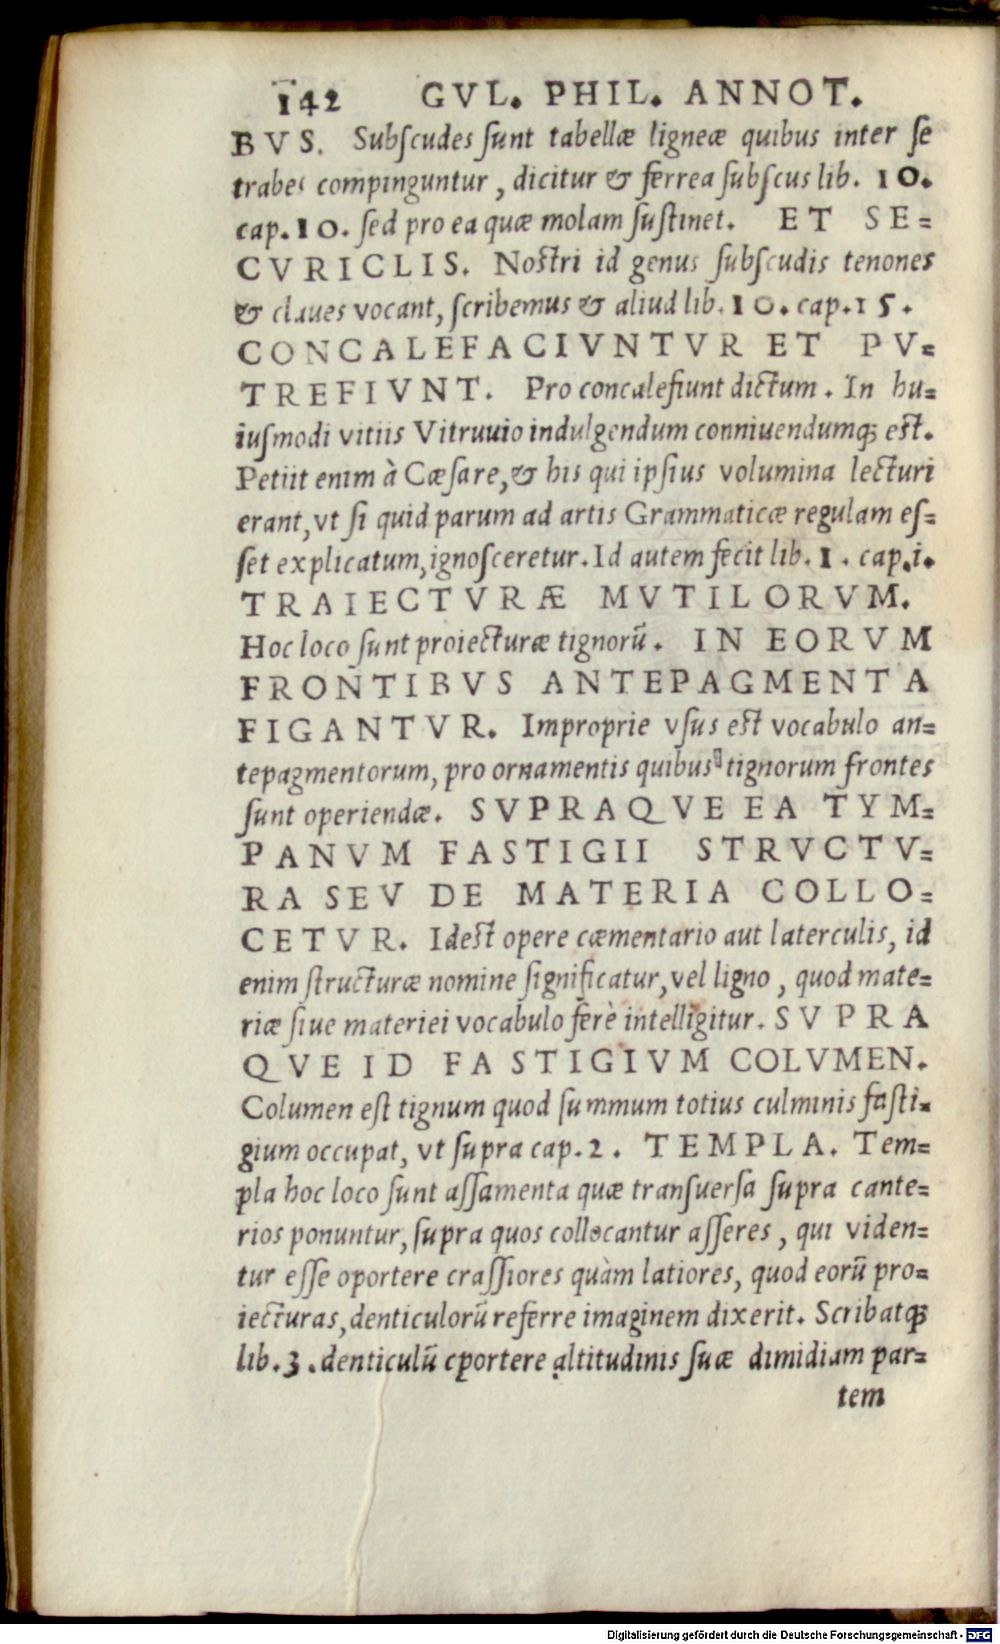 142 GVL. PHIL. ANNOT.
BVS. Subſcudes ſunt tabellæ ligneæ quibus inter ſe
trabes compinguntur, dicitur & ferrea ſubſcus lib. 10.
cap. 10. ſed pro ea quæ molam ſuſtinet. ET SE=
CVRICLIS. Noſtri id genus ſubſcudis tenones
& claues vocant, ſcribemus & aliud lib. 10. cap. 15.
CONCALEFACIVNTVR ET PV=
TREFIVNT. Pro concalefiunt dictum. In hu=
iuſmodi vitiis Vitruuio indulgendum conniuendumq; eſt.
Petiit enim à Cæſare, & his qui ipſius volumina lecturi
erant, vt ſi quid parum ad artis Grammaticæ regulam eſ=
ſet explicatum, ignoſceretur. Id autem fecit lib. 1. cap. i.
TRAIECTVRÆ MVTILORVM.
Hoc loco ſunt proiecturæ tignorū. IN EORVM
FRONTIBVS ANTEPAGMENTA
FIGANTVR. Improprie vſus eſt vocabulo an=
tepagmentorum, pro ornamentis quibus tignorum frontes
ſunt operiendæ. SVPRAQVE EA TYM=
PANVM FASTIGII STRVCTV=
RA SEV DE MATERIA COLLO=
CETVR. Ideſt opere cæmentario aut laterculis, id
enim ſtructuræ nomine ſignificatur, vel ligno, quod mate=
riæ ſiue materiei vocabulo ferè intelligitur. SVPRA
QVE ID FASTIGIVM COLVMEN.
Columen eſt tignum quod ſummum totius culminis faſti=
gium occupat, vt ſupra cap. 2. TEMPLA. Tem=
pla hoc loco ſunt aſſamenta quæ tranſuerſa ſupra cante=
rios ponuntur, ſupra quos collocantur aſſeres, qui viden=
tur eſſe oportere craſſiores quàm latiores, quod eorū pro=
iecturas, denticulorū referre imaginem dixerit. Scribatq;
lib. 3. denticulū oportere altitudinis ſuæ dimidiam par=
tem
Digitalisierung gefördert durch die Deutsche Forschungsgemeinschaft - DFG